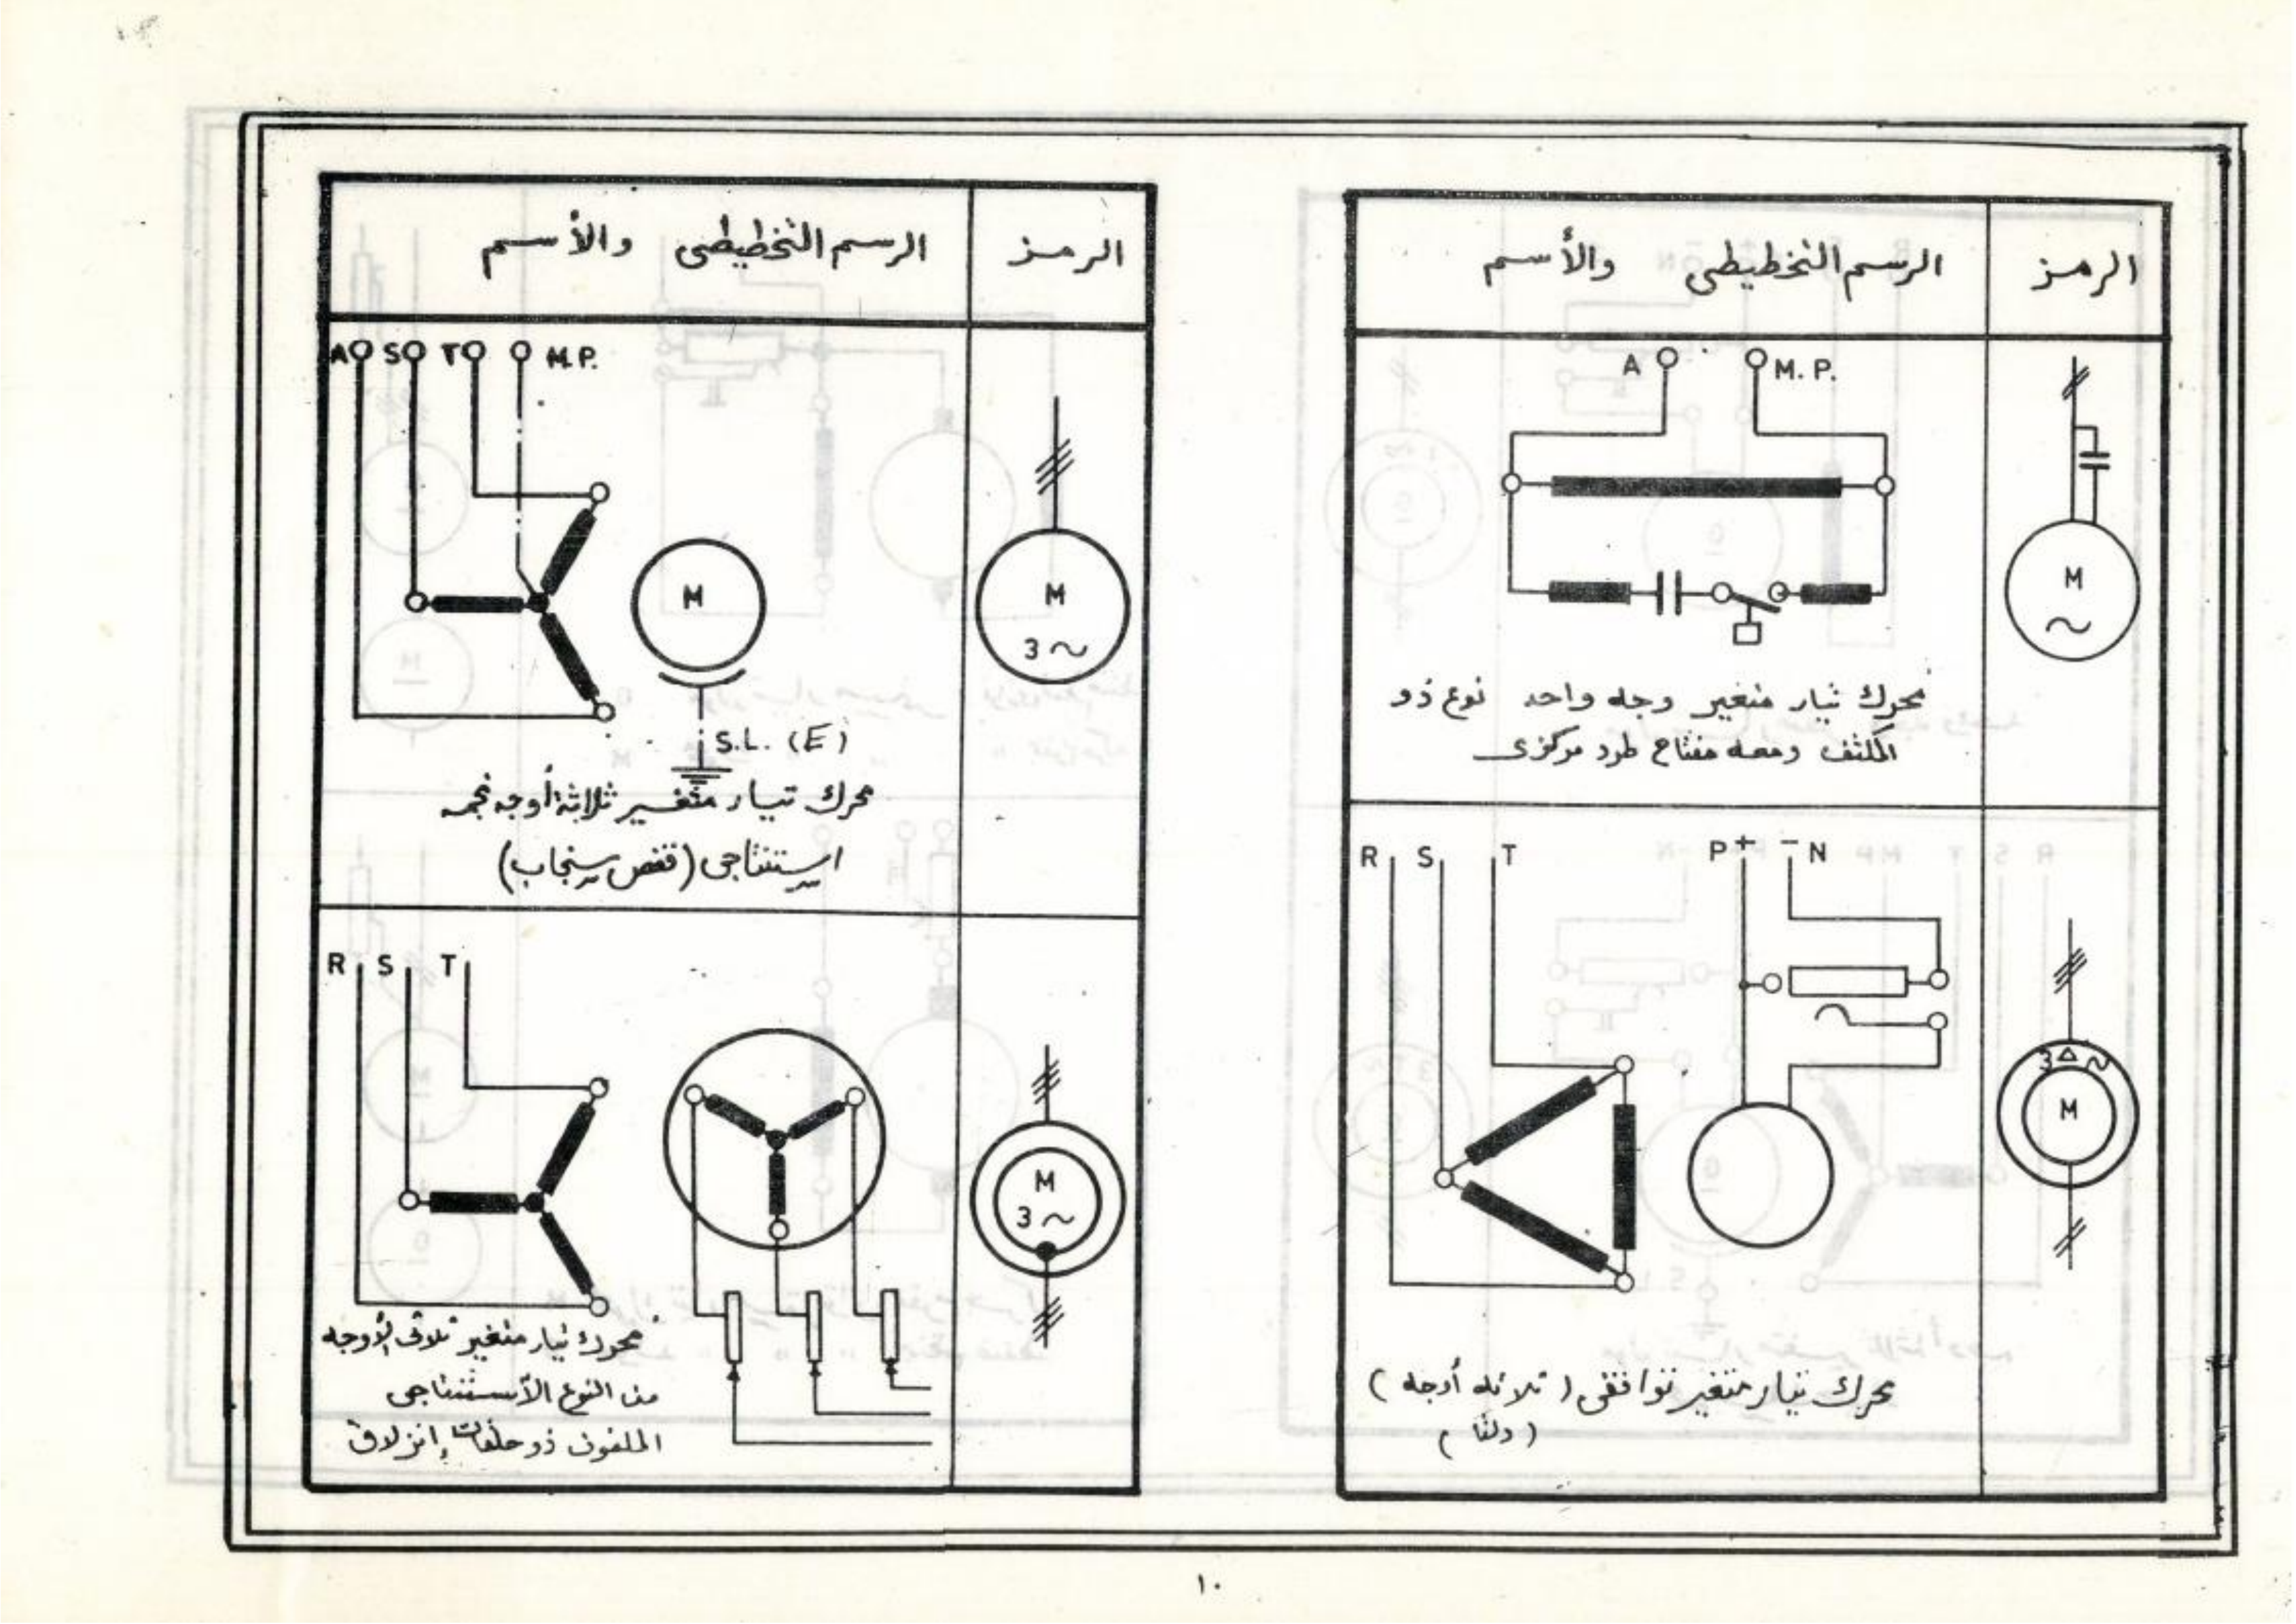 الرمز
الرسم التخطيطى والأسم
A M.P.
M
~
محرك تيار متغير وجه واحد نوع ذو
المكثف ومعه مفتاح طرد مركزى
R S T P+ -N
3 △ ~
M
محرك تيار متغير توافقى (ثلاثه أوجه)
(دلتا)
الرمز
الرسم التخطيطى والأسم
A S T M.P.
M
M
3 ~
S.L. (E)
محرك تيار متغير ثلاثة أوجه نجمه
استنتاجى (قفص سنجاب)
R S T
M
3 ~
محرك تيار متغير ثلاثى الأوجه
من النوع الأستنتاجى
الملفوف ذو حلقات إنزلاق
١٠